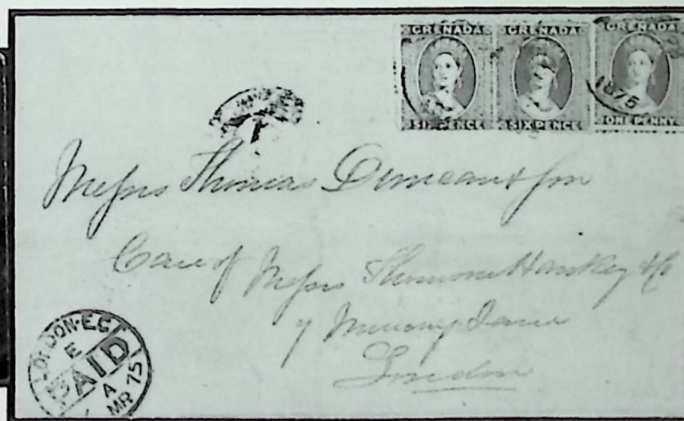 GRENADA GRENADA GRENADA
1875
SIX PENCE SIX PENCE ONE PENNY
Messrs Thomas Duncan & Son
Care of Messrs Thomson Hankey & Co
7 Mincing Lane
London
LONDON·E.C
E
PAID
A
MR 75